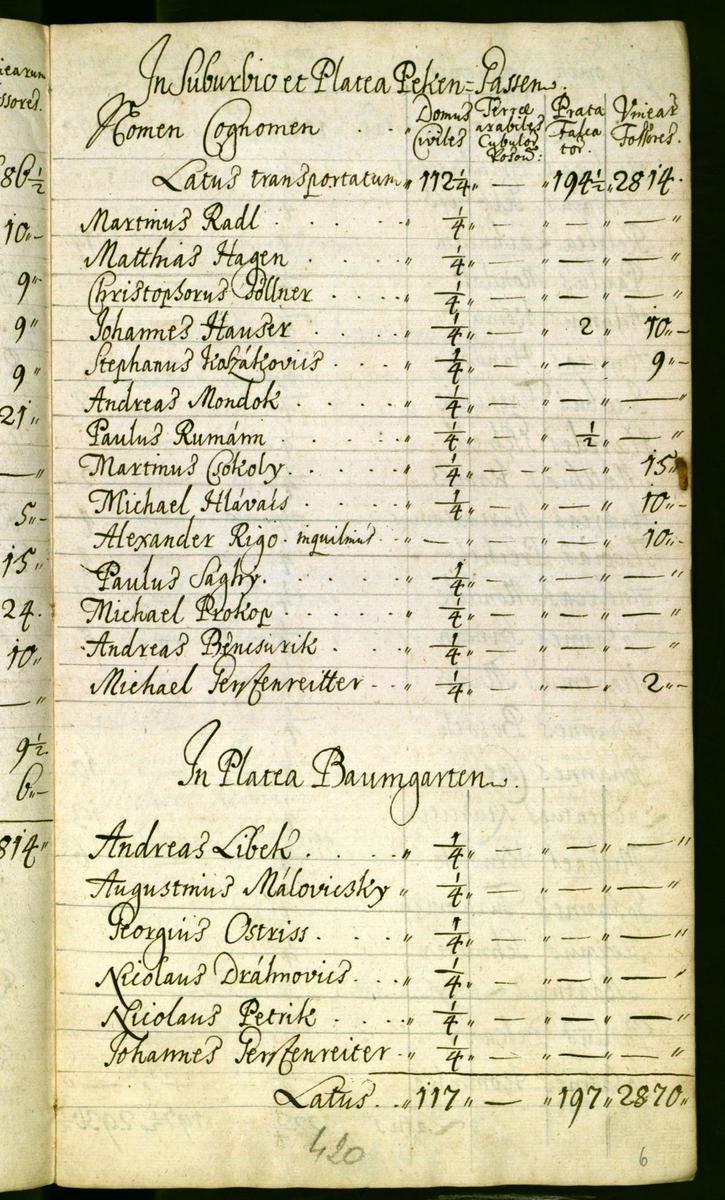 In Suburbio et Platea Peken=Gassen.
Nomen Cognomen . . " Domus Civiles Terræ arabiles Cubulor Poson: Prata Falcator. Vinear Fossores.
Latus transportatum " 112 1/4 " — " 194 1/2 " 2814.
Martinus Radl . . . . . " 1/4 " — " — " — "
Matthias Hagen . . . . " 1/4 " — " — " — "
Christophorus Pöllner . . . " 1/4 " — " — " — "
Johannes Hauser . . . . " 1/4 " — " 2 " 10 " -
Stephanus Koszátkovics . . . . " 1/4 " — " — " 9 " -
Andreas Mondok . . . . " 1/4 " — " — " —
Paulus Rumánn . . . . " 1/4 " — " 1/2 " — "
Martinus Csokoly . . . . " 1/4 — - — " 15 "
Michael Hláváts . . . . " 1/4 " — " — " 10 " -
Alexander Rigo . inquilinus . " — " — " — " 10 " -
Paulus Sághy . . . . . " 1/4 " — " — " — "
Michael Prokop . . . . . " 1/4 " — " — " — "
Andreas Bencsurik . . . . " 1/4 " — " — " — "
Michael Gerstenreitter . . " 1/4 " — " — " 2 " -
In Platea Baumgarten.
Andreas Libek . . . . " 1/4 " — " — " — "
Augustinus Málovieszky " 1/4 " — " — " — "
Georgius Ostriss . . . . " 1/4 " — " — " — "
Nicolaus Dráhnovics . . . " 1/4 " — " — " — "
Nicolaus Petrik . . . . " 1/4 " — " — " — "
Johannes Gerstenreiter . . " 1/4 " — " — " — "
Latus . . " 117 " — " 197 " 2870 "
420
6